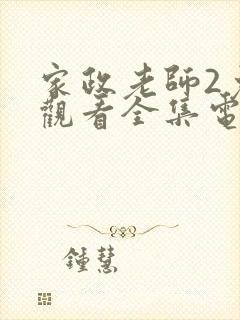 家政老師2
觀看全集電
鍾慧